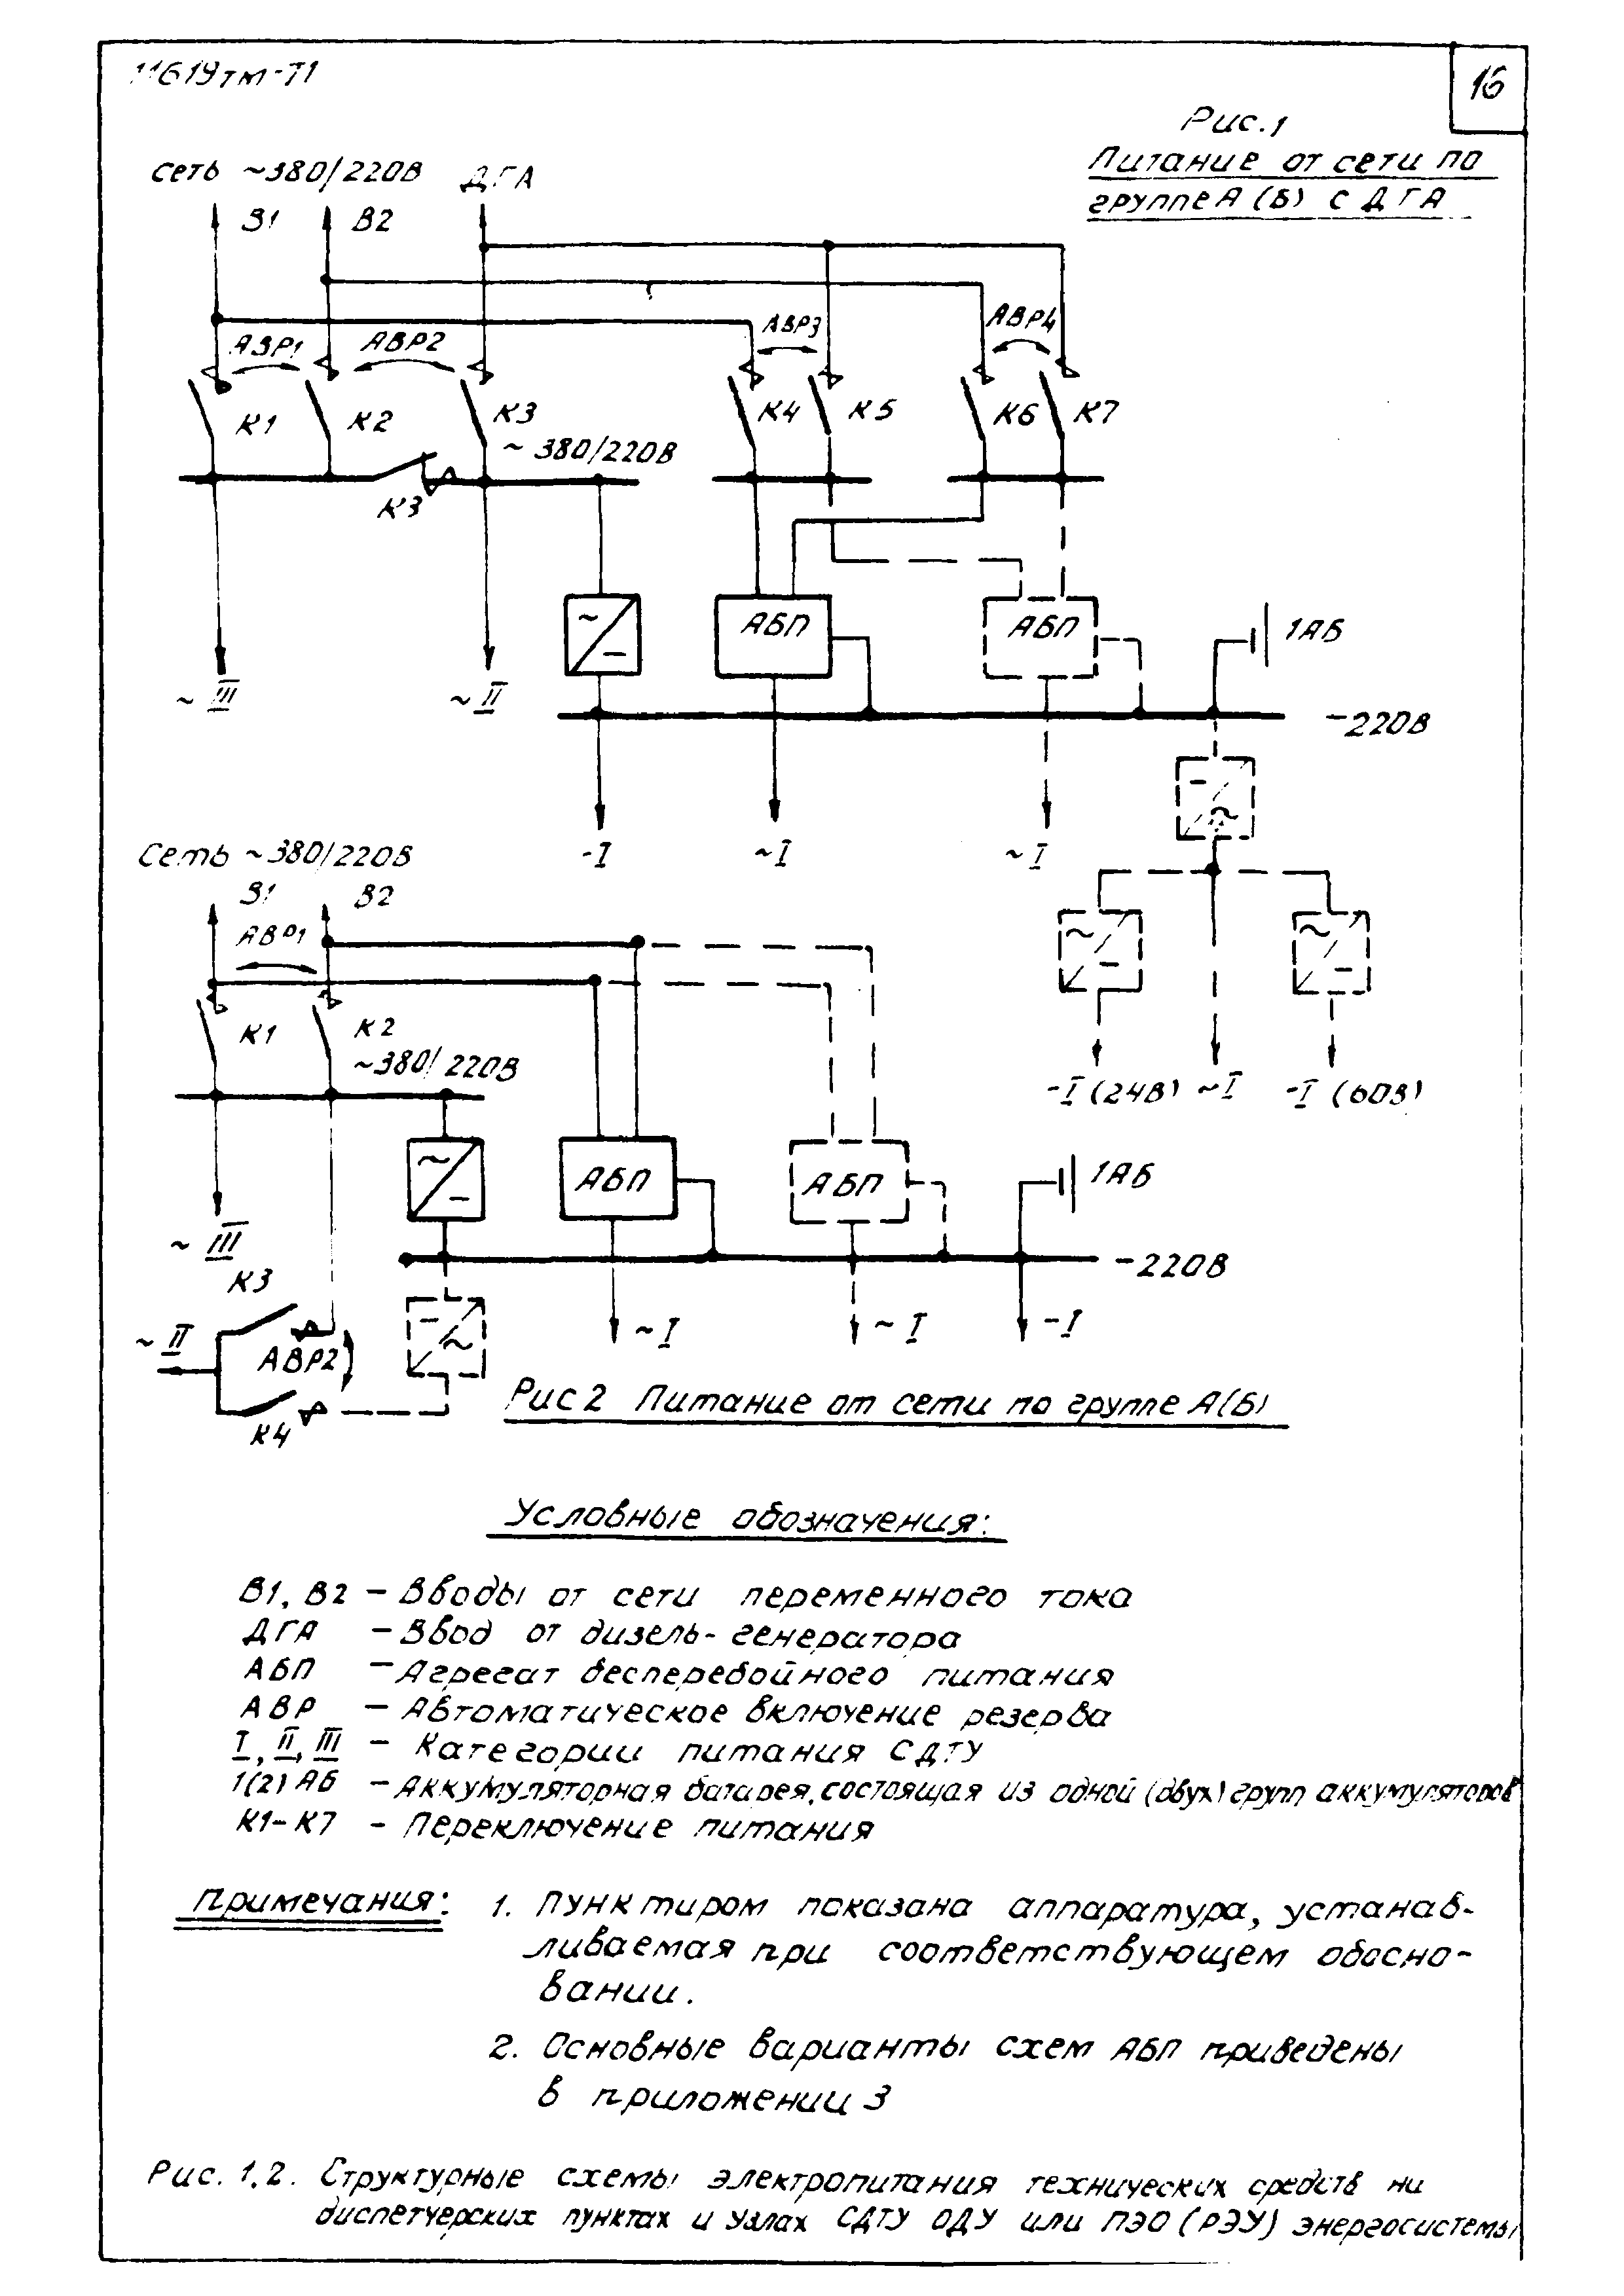 11619тм-Т1
16
Рис.1
Питание от сети по
группе А (Б) с ДГА
сеть ~380/220В ДГА
В1 В2
АВР1 АВР2 АВР3 АВР4
К1 К2 К3 К4 К5 К6 К7
~ 380/220В
К3
АБП АБП 1АБ
~ III ~ II
-220В
-I ~I ~I
Сеть ~380/220В
В1 В2
АВР1
К1 К2
~380/220В
-I (24В) ~I -I (60В)
АБП АБП 1АБ
~ III
-220В
К3
~ II ~I ~I -I
АВР2
К4
Рис 2 Питание от сети по группе А(Б)
Условные обозначения:
В1, В2 – Вводы от сети переменного тока
ДГА – Ввод от дизель-генератора
АБП – Агрегат бесперебойного питания
АВР – Автоматическое включение резерва
I, II, III – Категории питания СДТУ
1(2) АБ – Аккумуляторная батарея, состоящая из одной (двух) групп аккумуляторов
К1-К7 – Переключение питания
Примечания: 1. Пунктиром показана аппаратура, устанав-
ливаемая при соответствующем обосно-
вании.
2. Основные варианты схем АБП приведены
в приложении 3
Рис. 1,2. Структурные схемы электропитания технических средств на
диспетчерских пунктах и узлах СДТУ ОДУ или ПЭО (РЭУ) энергосистемы